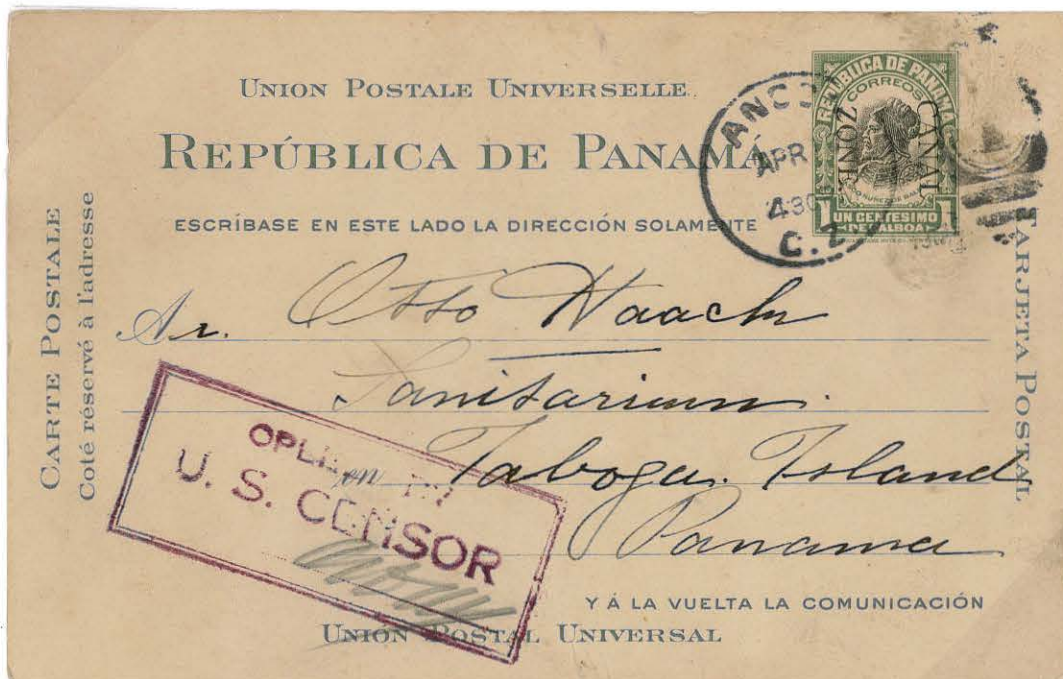 UNION POSTALE UNIVERSELLE.
REPÚBLICA DE PANAMÁ
ESCRÍBASE EN ESTE LADO LA DIRECCIÓN SOLAMENTE
CARTE POSTALE
Coté réservé à l'adresse
TARJETA POSTAL
REPÚBLICA DE PANAMA
CORREOS
CANAL
ZONE
1 UN CENTESIMO 1
DE BALBOA
ANCON
APR
430
C. Z.
A r. Otto
Sanitarium.
en Taboga Island
Panama
BY
U. S. CENSOR
Y Á LA VUELTA LA COMUNICACIÓN
UNION POSTAL UNIVERSAL